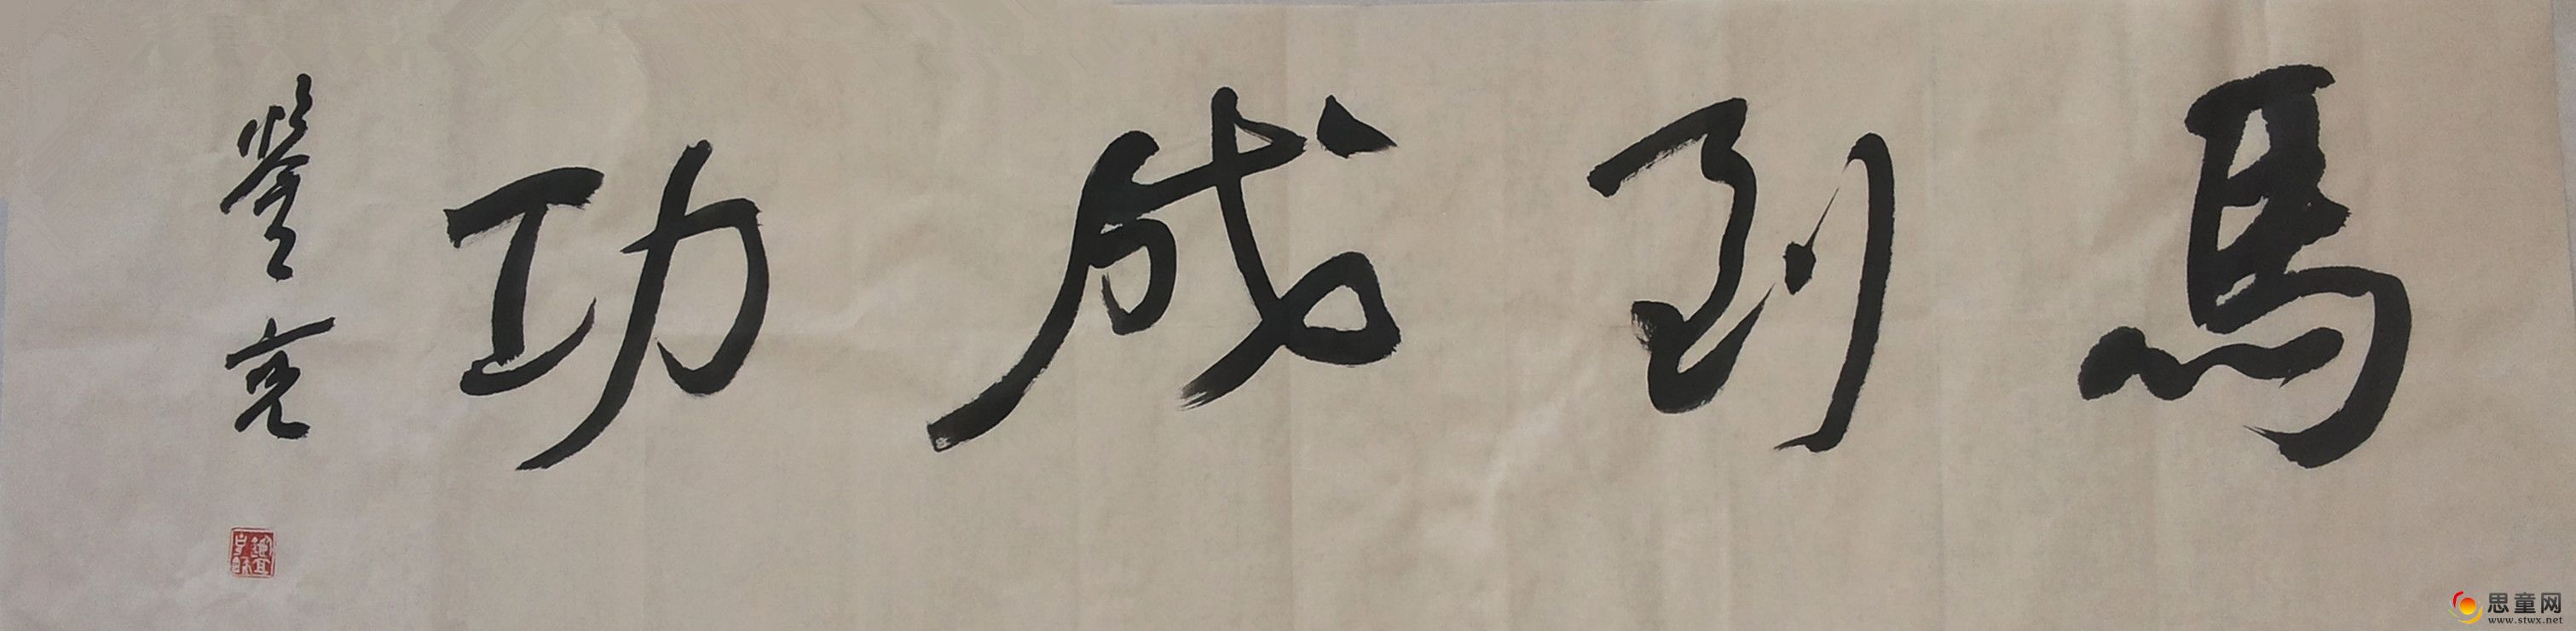 馬到成功
亮
思童网
www.stwx.net